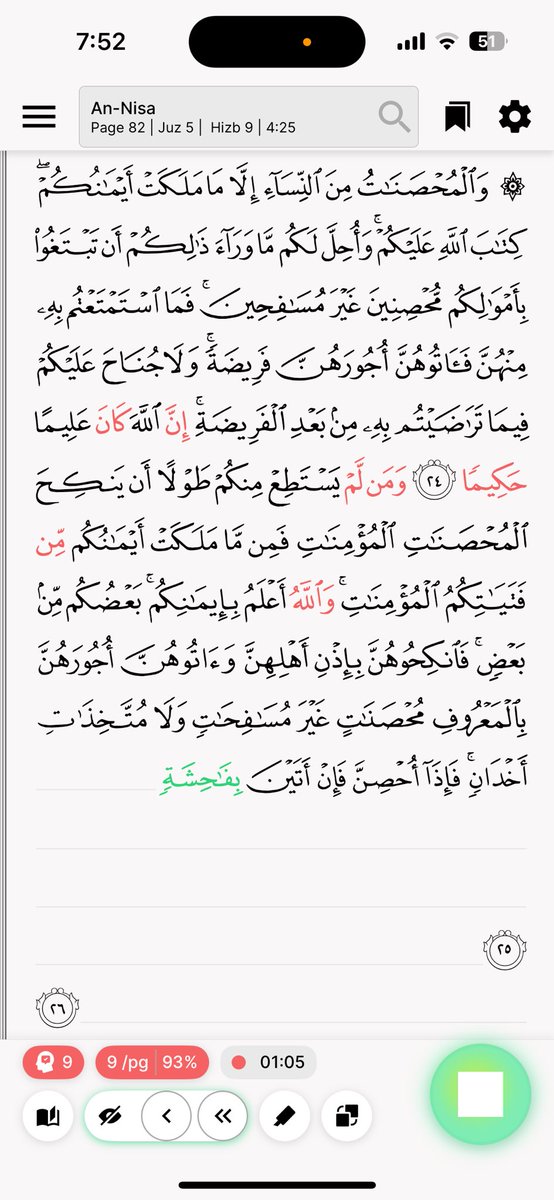 7:52
51
An-Nisa
Page 82 | Juz 5 | Hizb 9 | 4:25
۞ وَٱلْمُحْصَنَٰتُ مِنَ ٱلنِّسَآءِ إِلَّا مَا مَلَكَتْ أَيْمَٰنُكُمْ ۖ
كِتَٰبَ ٱللَّهِ عَلَيْكُمْ ۚ وَأُحِلَّ لَكُم مَّا وَرَآءَ ذَٰلِكُمْ أَن تَبْتَغُوا۟
بِأَمْوَٰلِكُم مُّحْصِنِينَ غَيْرَ مُسَٰفِحِينَ ۚ فَمَا ٱسْتَمْتَعْتُم بِهِۦ
مِنْهُنَّ فَـَٔاتُوهُنَّ أُجُورَهُنَّ فَرِيضَةً ۚ وَلَا جُنَاحَ عَلَيْكُمْ
فِيمَا تَرَٰضَيْتُم بِهِۦ مِنۢ بَعْدِ ٱلْفَرِيضَةِ ۚ إِنَّ ٱللَّهَ كَانَ عَلِيمًا
حَكِيمًا ٢٤ وَمَن لَّمْ يَسْتَطِعْ مِنكُمْ طَوْلًا أَن يَنكِحَ
ٱلْمُحْصَنَٰتِ ٱلْمُؤْمِنَٰتِ فَمِن مَّا مَلَكَتْ أَيْمَٰنُكُم مِّن
فَتَيَٰتِكُمُ ٱلْمُؤْمِنَٰتِ ۚ وَٱللَّهُ أَعْلَمُ بِإِيمَٰنِكُم ۚ بَعْضُكُم مِّنۢ
بَعْضٍ ۚ فَٱنكِحُوهُنَّ بِإِذْنِ أَهْلِهِنَّ وَءَاتُوهُنَّ أُجُورَهُنَّ
بِٱلْمَعْرُوفِ مُحْصَنَٰتٍ غَيْرَ مُسَٰفِحَٰتٍ وَلَا مُتَّخِذَٰتِ
أَخْدَانٍ ۚ فَإِذَآ أُحْصِنَّ فَإِنْ أَتَيْنَ بِفَٰحِشَةٍ
٢٥
٢٦
9 9 /pg | 93% 01:05